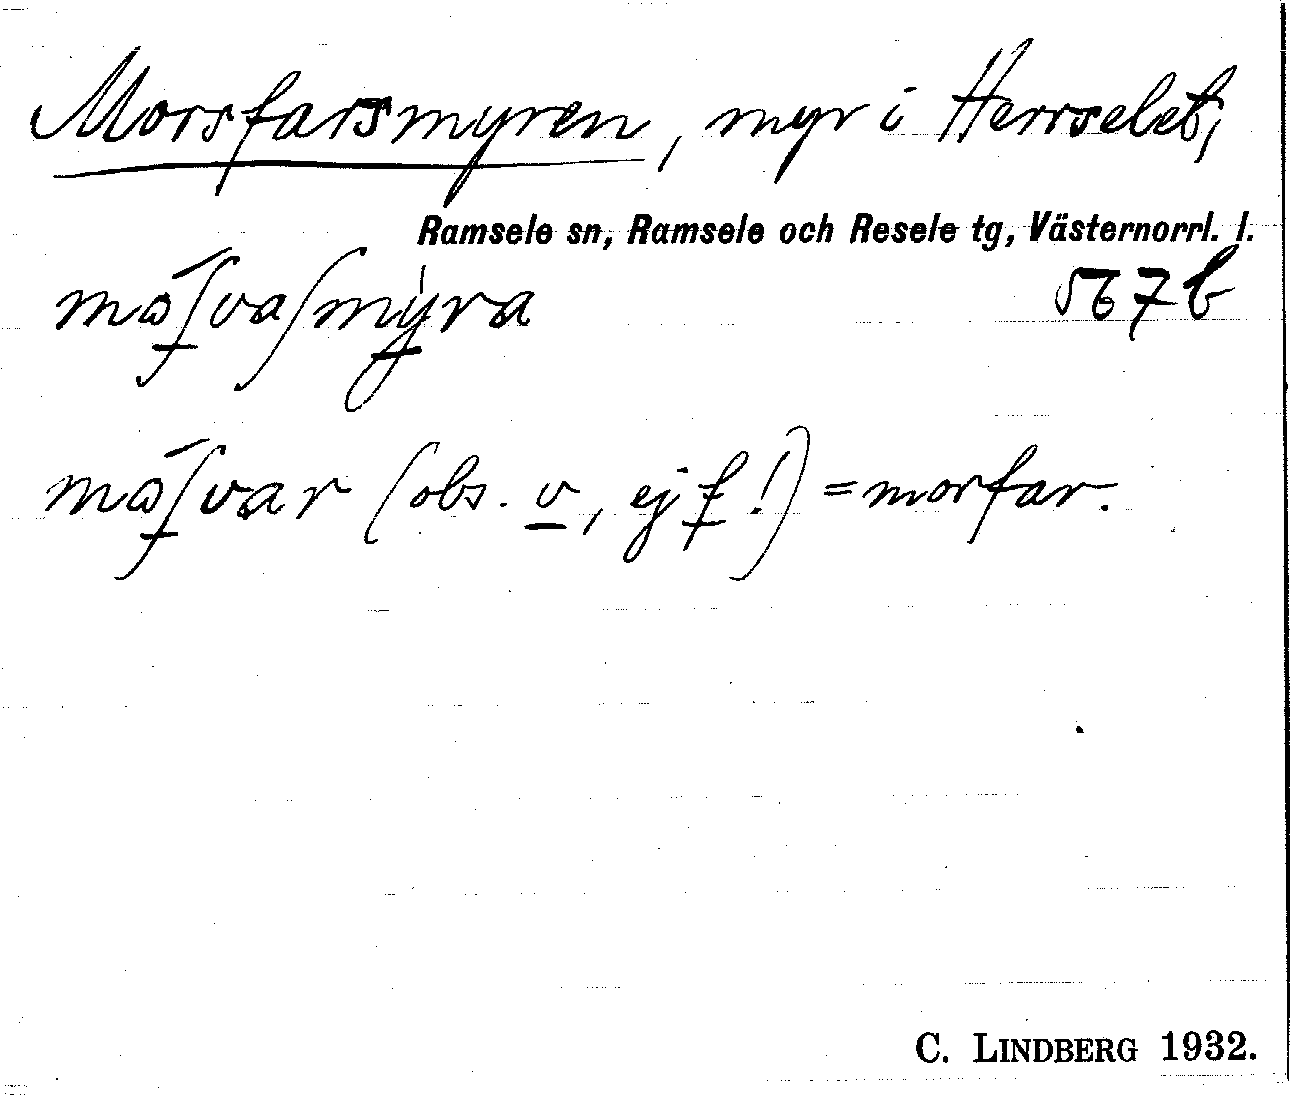 Morsfarsmyren, myr i Herrselet,
Ramsele sn, Ramsele och Resele tg, Västernorrl. l.
måʃvaʃmýra 567b
måʃvar (obs. v, ej f!) = morfar.
C. LINDBERG 1932.